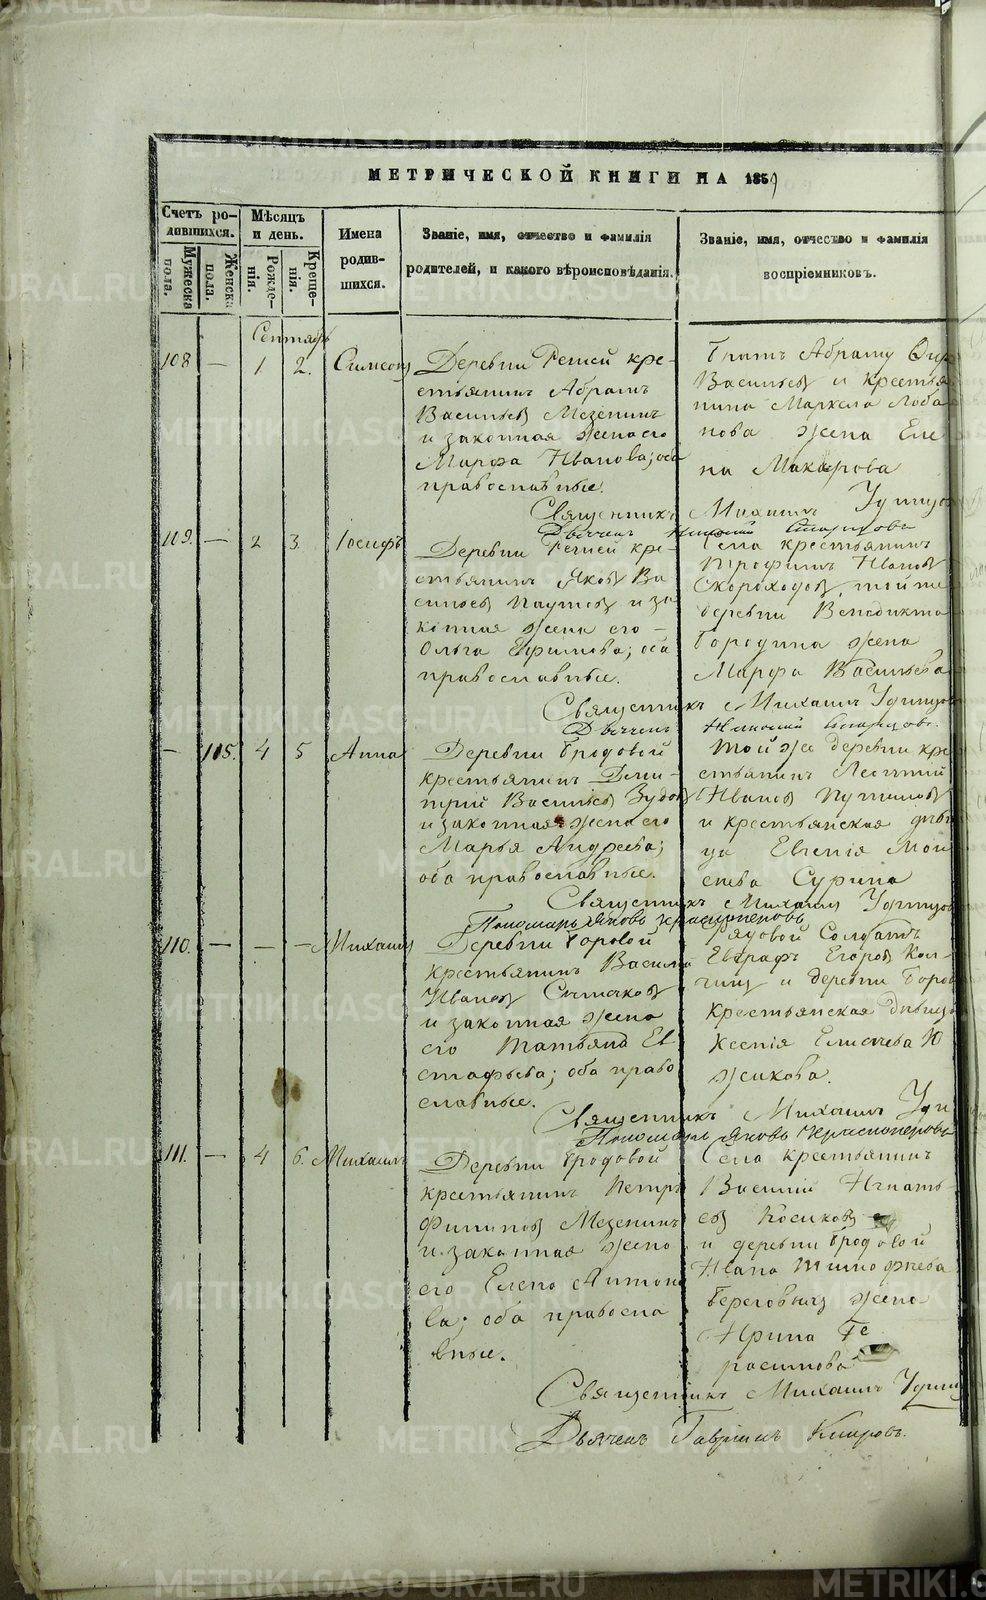 МЕТРИЧЕСКОЙ КНИГИ НА 1859
Счетъ ро-
дившихся.
Мужеска
пола.
Женска
пола.
Мѣсяцъ
и день.
Рожде-
нія.
Креще-
нія.
Имена
родив-
шихся.
Званіе, имя, отчество и фамилія
родителей, и какого вѣроисповѣданія.
Званіе, имя, отчество и фамилія
воспріемниковъ.
Сентябрь
108 — 1 2. Симеонъ
Деревни Речей кре-
стьянинъ Абрамъ
Васильевъ Мезенинъ
и законная жена его
Марфа Иванова; оба
православные.
Братъ Абраму
Васильевъ и крестья
нина Маркела Лоба
нова жена Еле
на Макарова
Священникъ Михаилъ Удинцов
Дьяченъ Николай
109. — 2 3. Іосифъ
Деревни Речей кре-
стьянинъ Яковъ Ва
сильевъ Паутов и за
конная жена его —
Ольга Ефимова; оба
православные.
Села крестьянинъ
Трофимъ Ивановъ
Скороходовъ, той же
деревни Венедикта
Бородина жена
Марфа Васильева
Священникъ Михаилъ Удинцов
Дьяченъ Николай
— 105. 4 5 Анна
Деревни Бродовой
крестьянинъ Дми-
трий Васильевъ Зудовъ
и законная жена его
Марья Андреева;
оба православные.
Той же деревни кре
стьянинъ Леонтий
Ивановъ Путиловъ
и крестьянская дѣви
ца Евгенія Мои
сеева Сурина
Священникъ Михаилъ Удинцов
Пономарь Яковъ Красноперовъ
110. — — — Михаилъ
Деревни Боровой
крестьянинъ Василий
Ивановъ Сычиковъ
и законная жена
его Татьяна Ев
стафьева; оба право
славные.
Рядовой Солдатъ
Евграфъ Егоровъ Кол-
чинъ и деревни Боров
крестьянская дѣвица
Ксенія Елисеева Ю
жикова.
Священникъ Михаилъ Удин
Пономарь Яковъ Красноперовъ
111. — 4 6. Михаилъ
Деревни Бродовой
крестьянинъ Петръ
Филиповъ Мезенинъ
и законная жена
его Елена Антоно
ва; оба правосла
вные.
Села крестьянинъ
Василий Игнать-
евъ Косиковъ
и деревни Бродовой
Ивана Тимофеева
Береговыхъ жена
Ирина Ге
расимова
Священникъ Михаилъ Удинц
Дьяченъ Гавриилъ Киировъ.